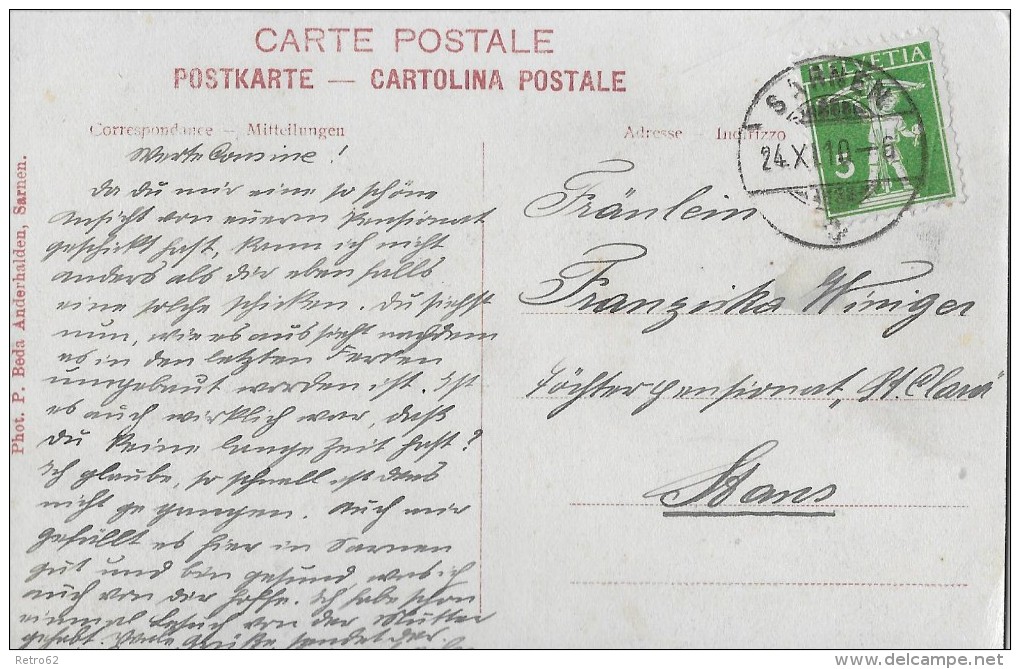 CARTE POSTALE
POSTKARTE — CARTOLINA POSTALE
Correspondance — Mitteilungen
Adresse — Indirizzo
HELVETIA
5
SARNEN
24.XI.10–6
Phot. P. Beda Anderhalden, Sarnen.
Werte Cousine!
Da du mir eine so schöne
Ansicht von euerm Pensionat
geschickt hast, kann ich nicht
anders als dir eben falls
eine solche schicken. Du siehst
nun, wie es aussieht nachdem
es in den letzten Ferien
umgebaut worden ist. Ist
es auch wirklich war, daß
du keine lange Zeit hast?
Ich glaube, so schnell ist das
nicht gegangen. Auch mir
gefällt es hier in Sarnen
gut und bin gesund, was ich
auch von dir hoffe. Ich habe schon
einmal Besuch von der Mutter
gehabt. Viele Grüße sendet dir
Fräulein
Franziska Winiger
Töchterpensionat, St. Clara
Stans
Retro62
www.delcampe.net